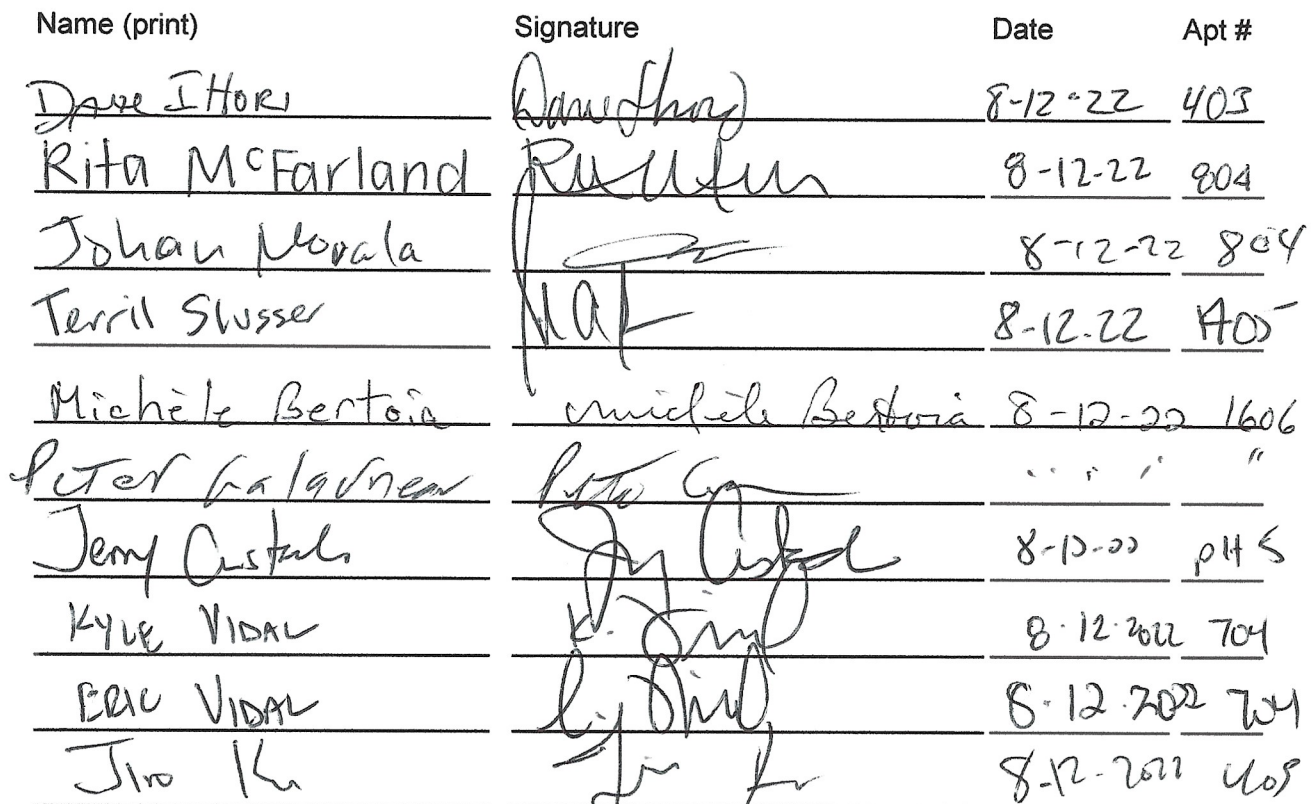 Name (print) Signature Date Apt #
Dave IHORI Dave Ihori 8-12-22 403
Rita McFarland 8-12-22 804
Johan Novala 8-12-22 804
Terril Slusser 8-12-22 1405
Michèle Bertoia Michèle Bertoia 8-12-22 1606
Peter "
Jerry Jerry 8-12-22 PH 5
KYLE VIDAL K. 8.12.2022 704
ERIC VIDAL 8.12.2022 704
8-12-2022